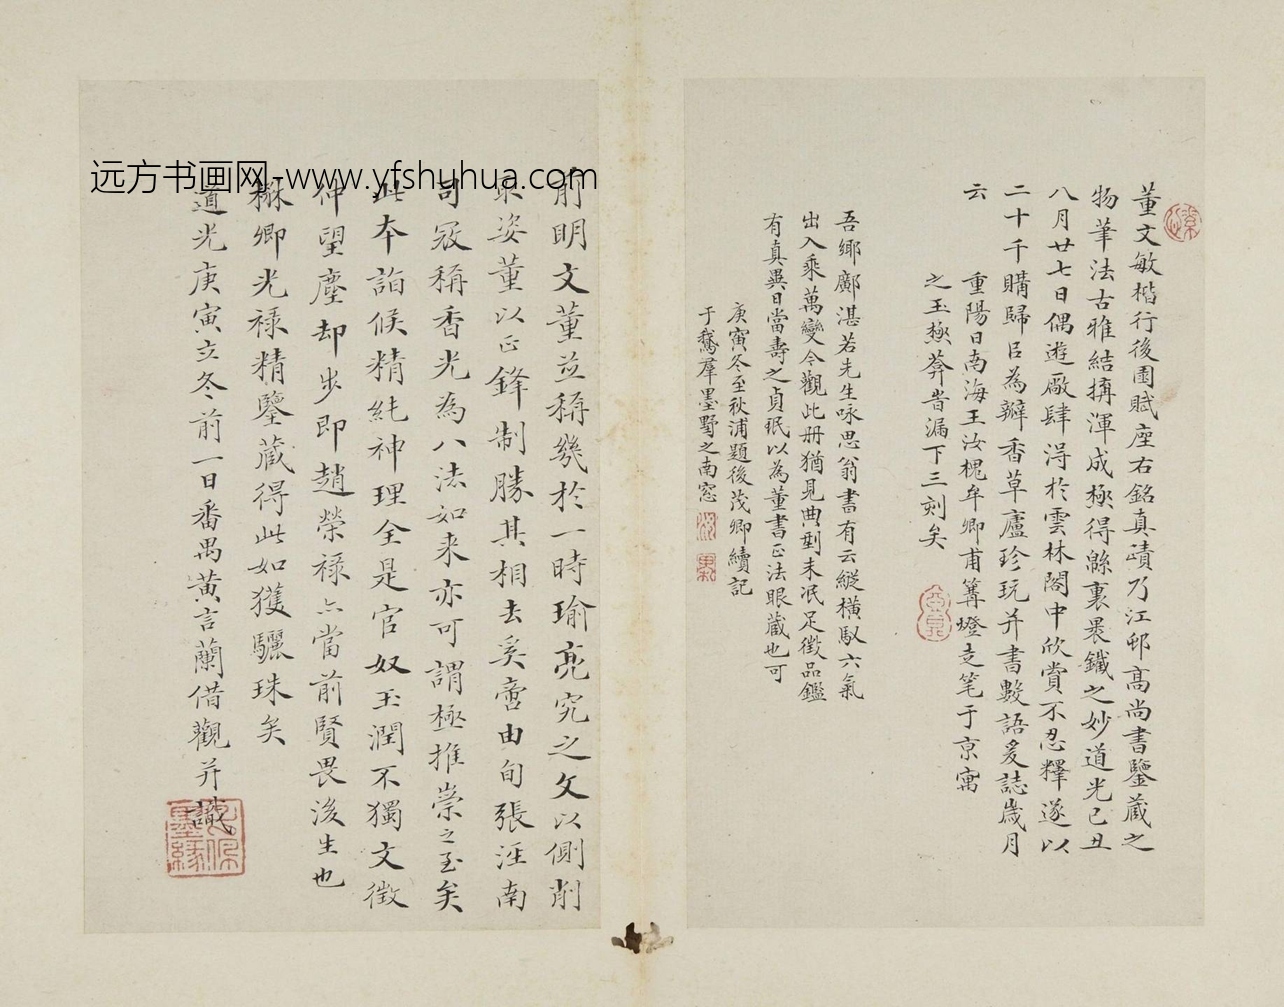 董文敏楷行後園賦座右銘真蹟乃江邨高尚書鑒藏之
物筆法古雅結搆渾成極得緜裏褁鐵之妙道光己丑
八月廿七日偶遊廠肆淂於雲林閣中欣賞不忍釋遂以
二十千購歸呂為瓣香草廬珍玩并書數語爰誌歲月
云
重陽日南海王汝槐牟卿甫篝燈走筆于京寓
之玉極莾峕漏下三刻矣
吾鄉鄺湛若先生咏思翁書有云縱橫馭六氣
出入乘萬變今觀此册猶見典型未冺足徵品鑑
有真異日當壽之貞珉以為董書正法眼藏也可
庚寅冬至秋浦題後茂卿續記
于鵞羣墨墅之南窓
前明文董並稱幾於一時瑜亮究之文以側削
取姿董以正鋒制勝其相去奚啻由旬張涇南
司寇稱香光為八法如来亦可謂極推崇之至矣
此本詣候精純神理全是官奴玉潤不獨文徵
仲望塵却步即趙榮祿亦當前賢畏後生也
楙卿光祿精鑒藏得此如獲驪珠矣
道光庚寅立冬前一日番禺黃言蘭借觀并識
远方书画网-www.yfshuhua.com